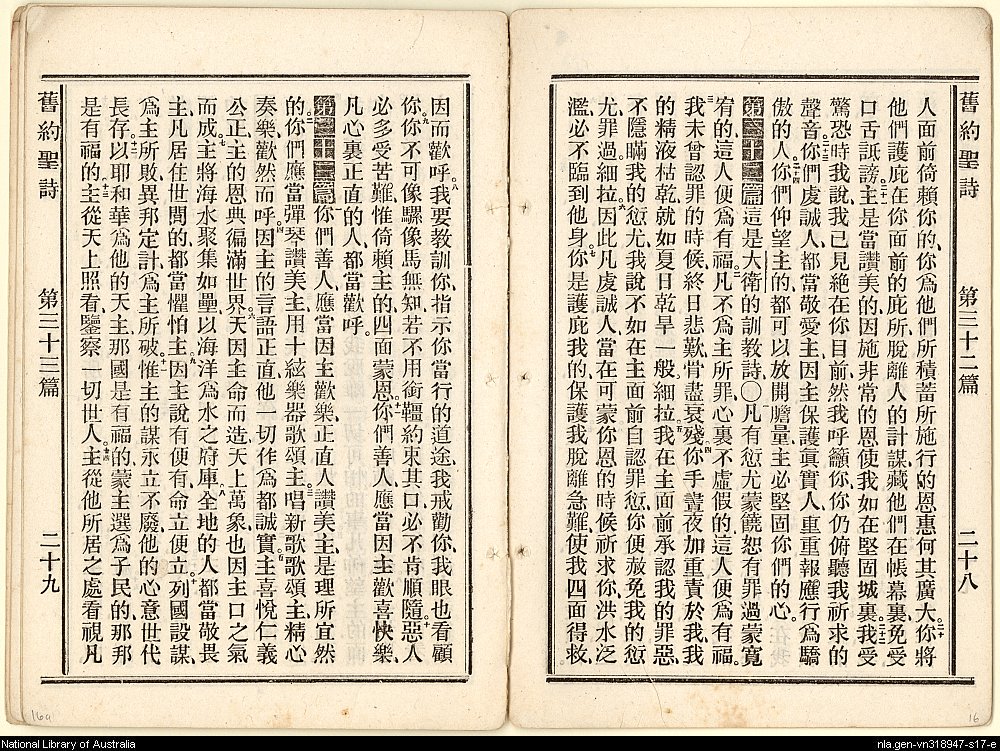 舊約聖詩　第三十二篇　二十八
人面前倚賴你的、你爲他們所積蓄所施行的恩惠何其廣大。二十你將
他們護庇在你面前的庇所脫離人的計謀、藏他們在帳幕裏免受
口舌詆謗。二十一主是當讚美的、因施非常的恩使我如在堅固城裏。二十二我受
驚恐時我說、我已見絕在你目前、然我呼籲你、你仍俯聽我祈求的
聲音。二十三你們虔誠人都當敬愛主、因主保護眞實人、重重報應行爲驕
傲的人。二十四你們仰望主的都可以放開膽量、主必堅固你們的心。
第三十二篇這是大衛的訓教詩、〇一凡有愆尤蒙饒恕、有罪過蒙寬
宥的、這人便爲有福。二凡不爲主所罪、心裏不虛假的、這人便爲有福。
三我未曾認罪的時候、終日悲歎、骨盡衰殘。四你手晝夜加重責於我、我
的精液枯乾、就如夏日乾旱一般、細拉。五我在主面前承認我的罪惡、
不隱瞞我的愆尤、我說不如在主面前自認罪愆、你便赦免我的愆
尤罪過、細拉。六因此凡虔誠人當在可蒙你恩的時候祈求你、洪水泛
濫必不臨到他身。七你是護庇我的、保護我脫離急難、使我四面得救、
因而歡呼。八我要教訓你、指示你當行的道途、我戒勸你、我眼也看顧
你。九你不可像騾像馬無知、若不用銜韁約束其口、必不肯順隨。十惡人
必多受苦難、惟倚賴主的四面蒙恩。十一你們善人應當因主歡喜快樂、
凡心裏正直的人、都當歡呼。
第三十三篇你們善人應當因主歡樂、正直人讚美主、是理所宜然
的。二你們應當彈琴讚美主、用十絃樂器歌頌主。三唱新歌歌頌主、精心
奏樂、歡然而呼。四因主的言語正直、他一切作爲都誠實。五主喜悅仁義
公正、主的恩典徧滿世界。六天因主命而造、天上萬象也因主口之氣
而成。七主將海水聚集如壘、以海洋爲水之府庫。八全地的人都當敬畏
主、凡居住世間的、都當懼怕主。九因主說有便有、命立便立。十列國設謀、
爲主所敗、異邦定計、爲主所破。十一惟主的謀永立不廢、他的心意世代
長存。十二以耶和華爲他的天主、那國是有福的、蒙主選爲子民的、那邦
是有福的。十三主從天上照看、鑒察一切世人。十四主從他所居之處看視凡
舊約聖詩　第三十三篇　二十九
16a
16
National Library of Australia
nla.gen-vn318947-s17-e